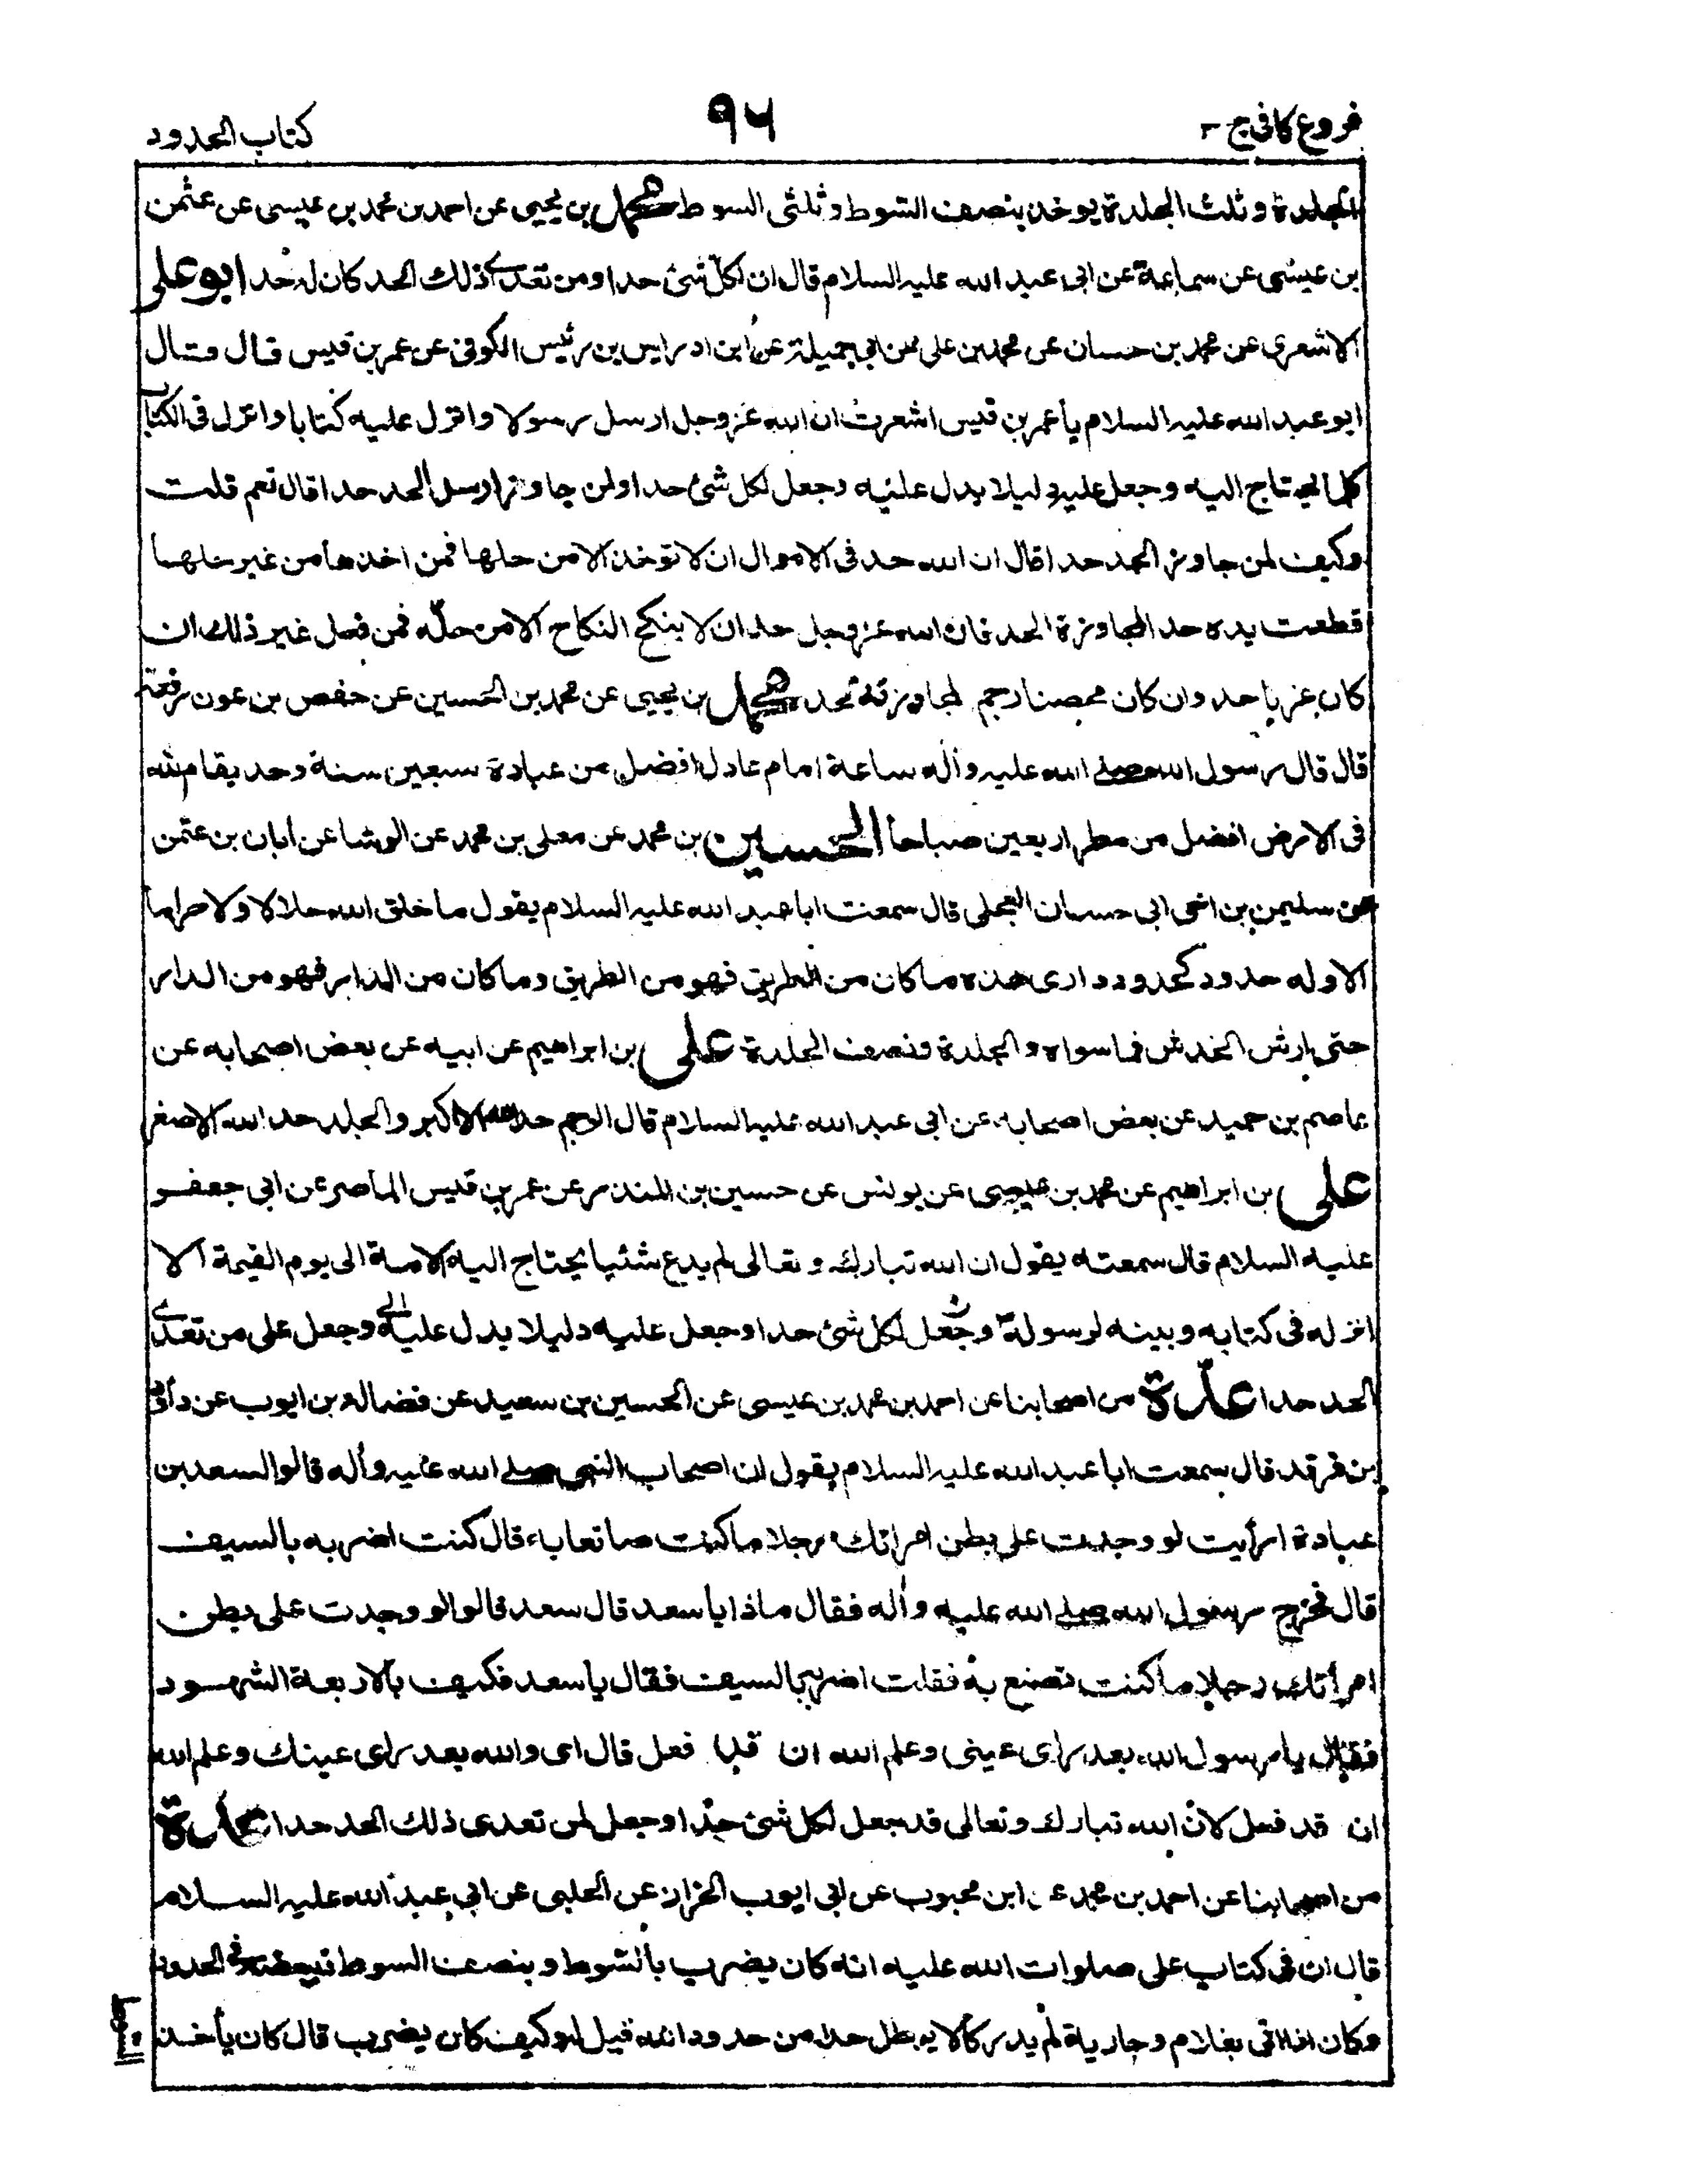 فروع كافى ج ٣
٩٦
كتاب الحدود
الجلدة وثلث الجلدة يوخذ بنصف السوط وثلثى السوط محمد بن يحيى عن احمد بن محمد بن عيسى عن عثمن
بن عيسى عن سماعة عن ابى عبد الله عليه السلام قال ان لكل شئ حدا ومن تعدى ذلك الحد كان له حد ابو على
الاشعرى عن محمد بن حسان عن محمد بن على عن ابى جميلة عن ابن ادريس بن رئيس الكوفى عن عمر بن قيس قال قال
ابو عبد الله عليه السلام يا عمر بن قيس اشعرت ان الله عز وجل ارسل رسولا وانزل عليه كتابا وانزل فى الكتاب
كل ما يحتاج اليه وجعل عليه دليلا يدل عليه وجعل لكل شئ حدا ولمن جاوز الحد حدا قال نعم قلت
وكيف لمن جاوز الحد حدا قال ان الله حد فى الاموال ان لا توخذ الا من حلها فمن اخذها من غير حلها
قطعت يده حد المجاوزة الحد فان الله عز وجل حد ان لا ينكح النكاح الا من حله فمن فعل غير ذلك ان
كان عزبا حد وان كان محصنا رجم لمجاوزته الحد محمد بن يحيى عن محمد بن الحسين عن حفص بن عون رفعه
قال قال رسول الله صلى الله عليه واله ساعة امام عادل افضل من عبادة سبعين سنة وحد يقام لله
فى الارض افضل من مطر اربعين صباحا الحسين بن محمد عن معلى بن محمد عن الوشا عن ابان بن عثمن
عن سليمن بن اخى ابى حسان العجلى قال سمعت ابا عبد الله عليه السلام يقول ما خلق الله حلالا ولا حراما
الا وله حدود كحدود دارى هذه ما كان من الطريق فهو من الطريق وما كان من الدار فهو من الدار
حتى ارش الخدش فما سواه والجلدة ونصف الجلدة على بن ابراهيم عن ابيه عن بعض اصحابه عن
عاصم بن حميد عن بعض اصحابه عن ابى عبد الله عليه السلام قال الرجم حد الله الاكبر والجلد حد الله الاصغر
على بن ابراهيم عن محمد بن عيسى عن يونس عن حسين بن المنذر عن عمر بن قيس الماصر عن ابى جعفر
عليه السلام قال سمعته يقول ان الله تبارك وتعالى لم يدع شئيا يحتاج اليه الامة الى يوم القيمة الا
انزله فى كتابه وبينه لرسوله وجعل لكل شئ حدا وجعل عليه دليلا يدل عليه وجعل على من تعدى
الحد حدا عدة من اصحابنا عن احمد بن محمد بن عيسى عن الحسين بن سعيد عن فضالة بن ايوب عن داود
بن فرقد قال سمعت ابا عبد الله عليه السلام يقول ان اصحاب النبى صلى الله عليه واله قالوا لسعد بن
عبادة ارأيت لو وجدت على بطن امرأتك رجلا ما كنت صانعا به قال كنت اضربه بالسيف
قال فخرج رسول الله صلى الله عليه واله فقال ماذا يا سعد قال سعد قالوا لو وجدت على بطن
امرأتك رجلا ما كنت تصنع به فقلت اضربه بالسيف فقال يا سعد فكيف بالاربعة الشهود
فقال يا رسول الله بعد راى عينى وعلم الله ان قد فعل قال اى والله بعد راى عينك وعلم الله
ان قد فعل لان الله تبارك وتعالى قد جعل لكل شئ حدا وجعل لمن تعدى ذلك الحد حدا عدة
من اصحابنا عن احمد بن محمد عن ابن محبوب عن ابى ايوب الخزاز عن الحلبى عن ابى عبد الله عليه السلام
قال ان فى كتاب على صلوات الله عليه انه كان يضرب بالسوط وبنصف السوط وببعضه فى الحدود
وكان اذا اتى بغلام وجارية لم يدركا لا يبطل حدا من حدود الله قيل له وكيف كان يضرب قال كان يأخذ
السوط